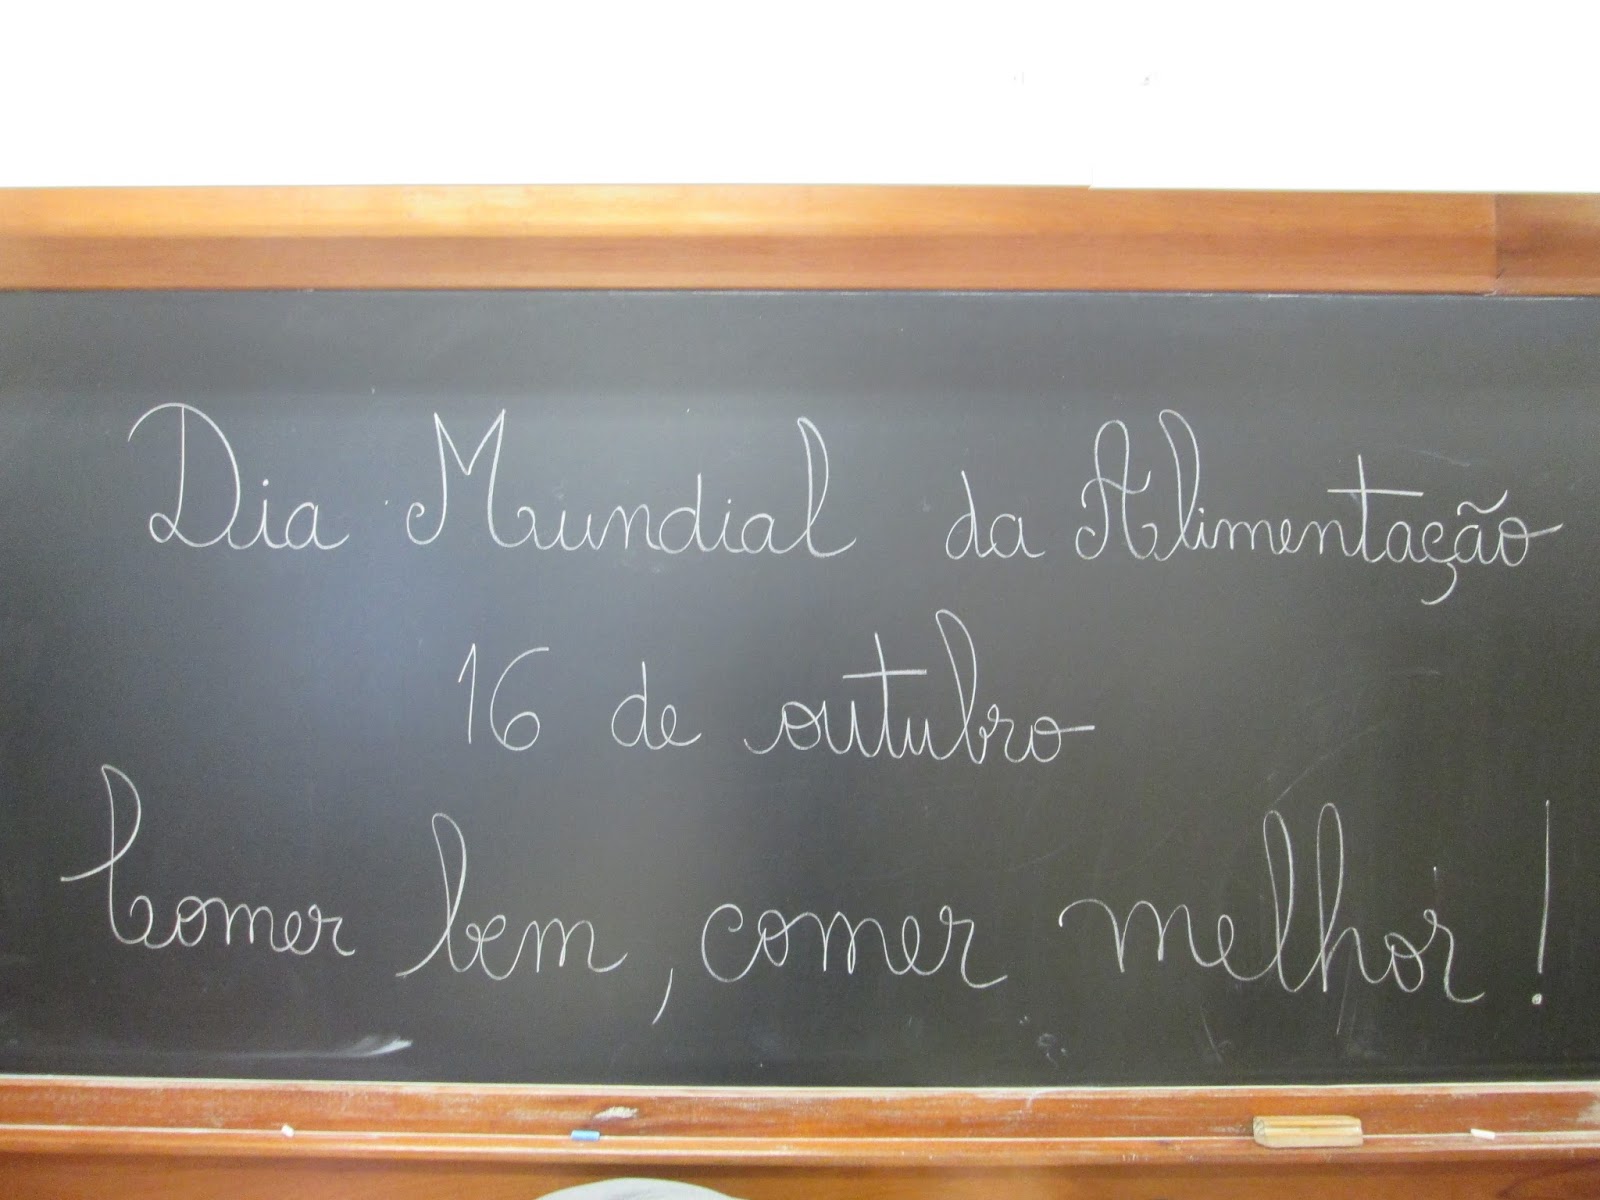 Dia Mundial da Alimentação
16 de outubro
Comer bem, comer melhor!